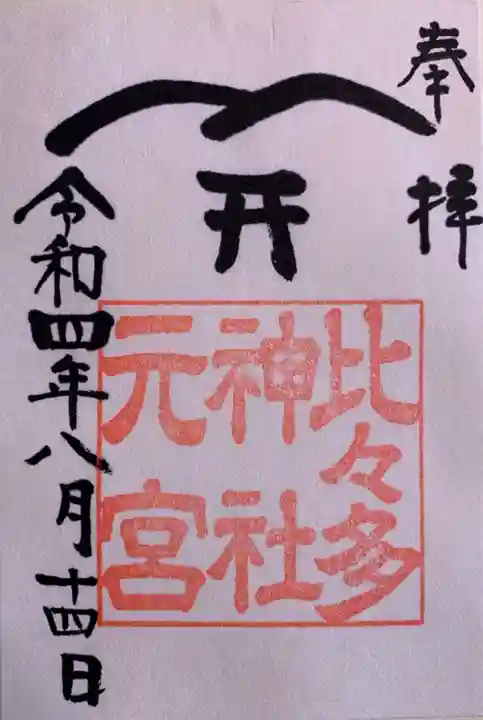 奉拝
比々多
神社
元宮
令和四年八月十四日